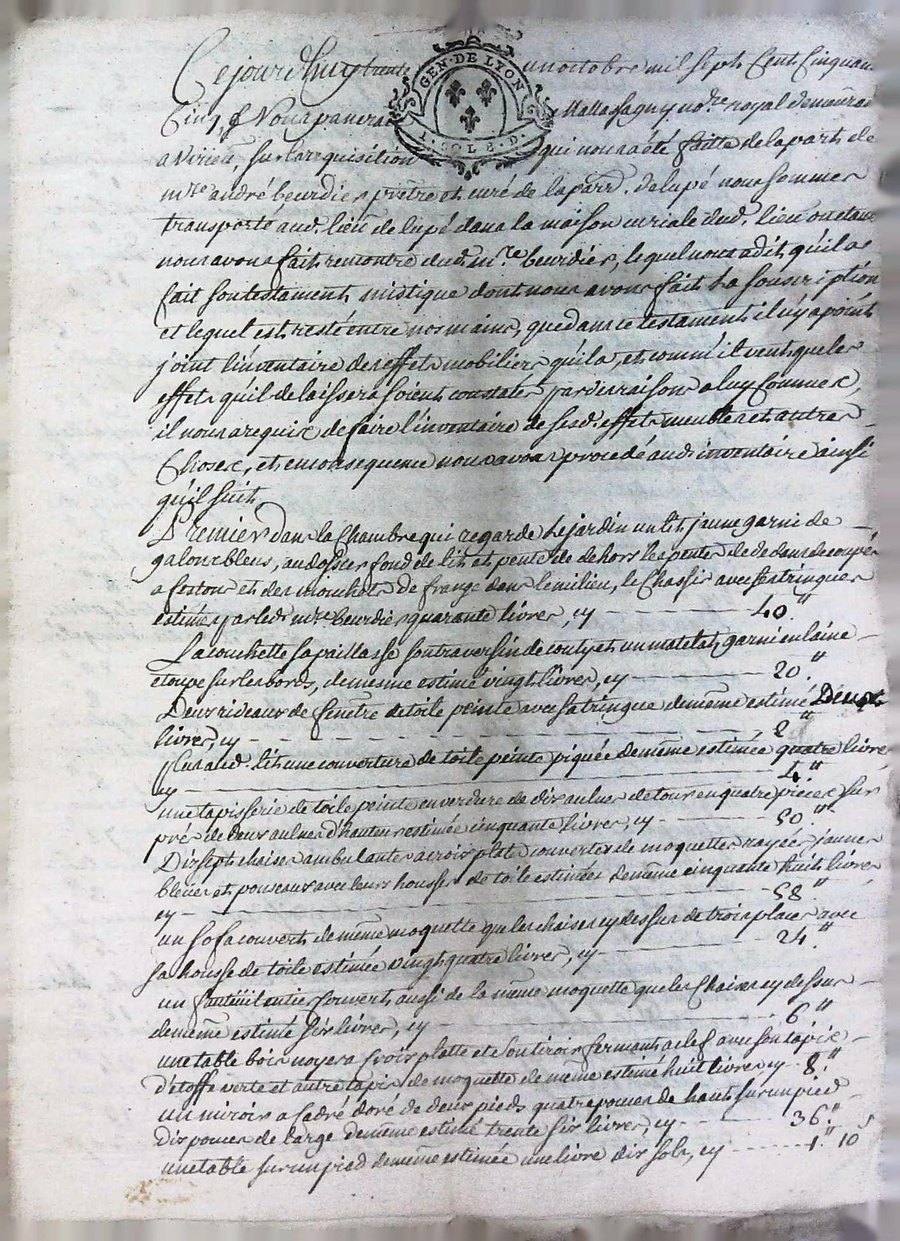 Cejourd'huy trente un octobre mil sept Cent Cinquante
Cinq, Nous Malassagny no.re royal demeurant
a Virieu, sur la requisition qui nous a été faitte de la part de
GEN · DE LYON
1 SOL 8 D.
m.re andré beurdier prêtre et curé de la parr. de lupé nous sommes
transporté aud. lieu de lupé dans la maison curiale dud. lieu ou etant
nous avons fait rencontre dudt m.re beurdier, lequel nous a dit qu'il a
fait son testament mistique dont nous avons fait la souscription
et lequel est resté entre nos mains, que dans ce testament il n'y a point
joint l'inventaire des effets mobiliers qu'il a, et comm'il veut que les
effets qu'il delaissera soient constatés par des raisons a luy connues,
il nous a requis de faire l'inventaire de sesd. effets meubles et autres
choses, et en consequence nous avons procedé audt inventaire ainsi
qu'il suit
Premier dans la Chambre qui regarde le jardin un lit jaune garni de
galons bleus, au dossier fond de lit et pente de dehors les pentes de dedans decoupés
a feston et des mouchets de frange dans le milieu, le Chassis avec ses tringues
estimé par ledt m.re beurdier quarante livres, cy 40."
La couchette sa paillasse son traversin de couty et un matelat garni en laine
etoupe sur les bords, de mesme estimé vingt livres, cy 20."
Deux rideaux de fenêtre de toile peinte avec sa tringue de même estimé Deux
livres, cy 2"
Plus aud. lit une couverture de toile peinte piquée de même estimée quatre livres
cy 4."
une tapisserie de toile peinte en verdure de dix aulnes de tour en quatre pieces sur
prés de deux aulnes d'hauteur estimée cinquante livres, cy 50."
Dix sept chaises ambulantes a croix plate couvertes de moquettes rayées jaunes
bleues et ponceaux avec leurs housses de toile estimées de même cinquante huit livres
cy 58."
un sofa couvert de même moquette que les chaises cy dessus de trois places avec
sa housse de toile estimée vingt quatre livres, cy 24."
un fauteüil entier couvert aussi de la même moquette que les Chaises cy dessus
de même estimé six livres, cy 6"
une table bois noyer a croix platte et son tiroir fermant a clef avec son tapis
d'étoffe verte et autre tapis de moquette de même estimé huit livres cy 8."
un miroir a cadre doré de deux pieds quatre pouces de haut sur un pied
dix pouces de large de même estimé trente six livres, cy 36."
une table sur un pied de même estimée une livre dix sols, cy 1." 10 s